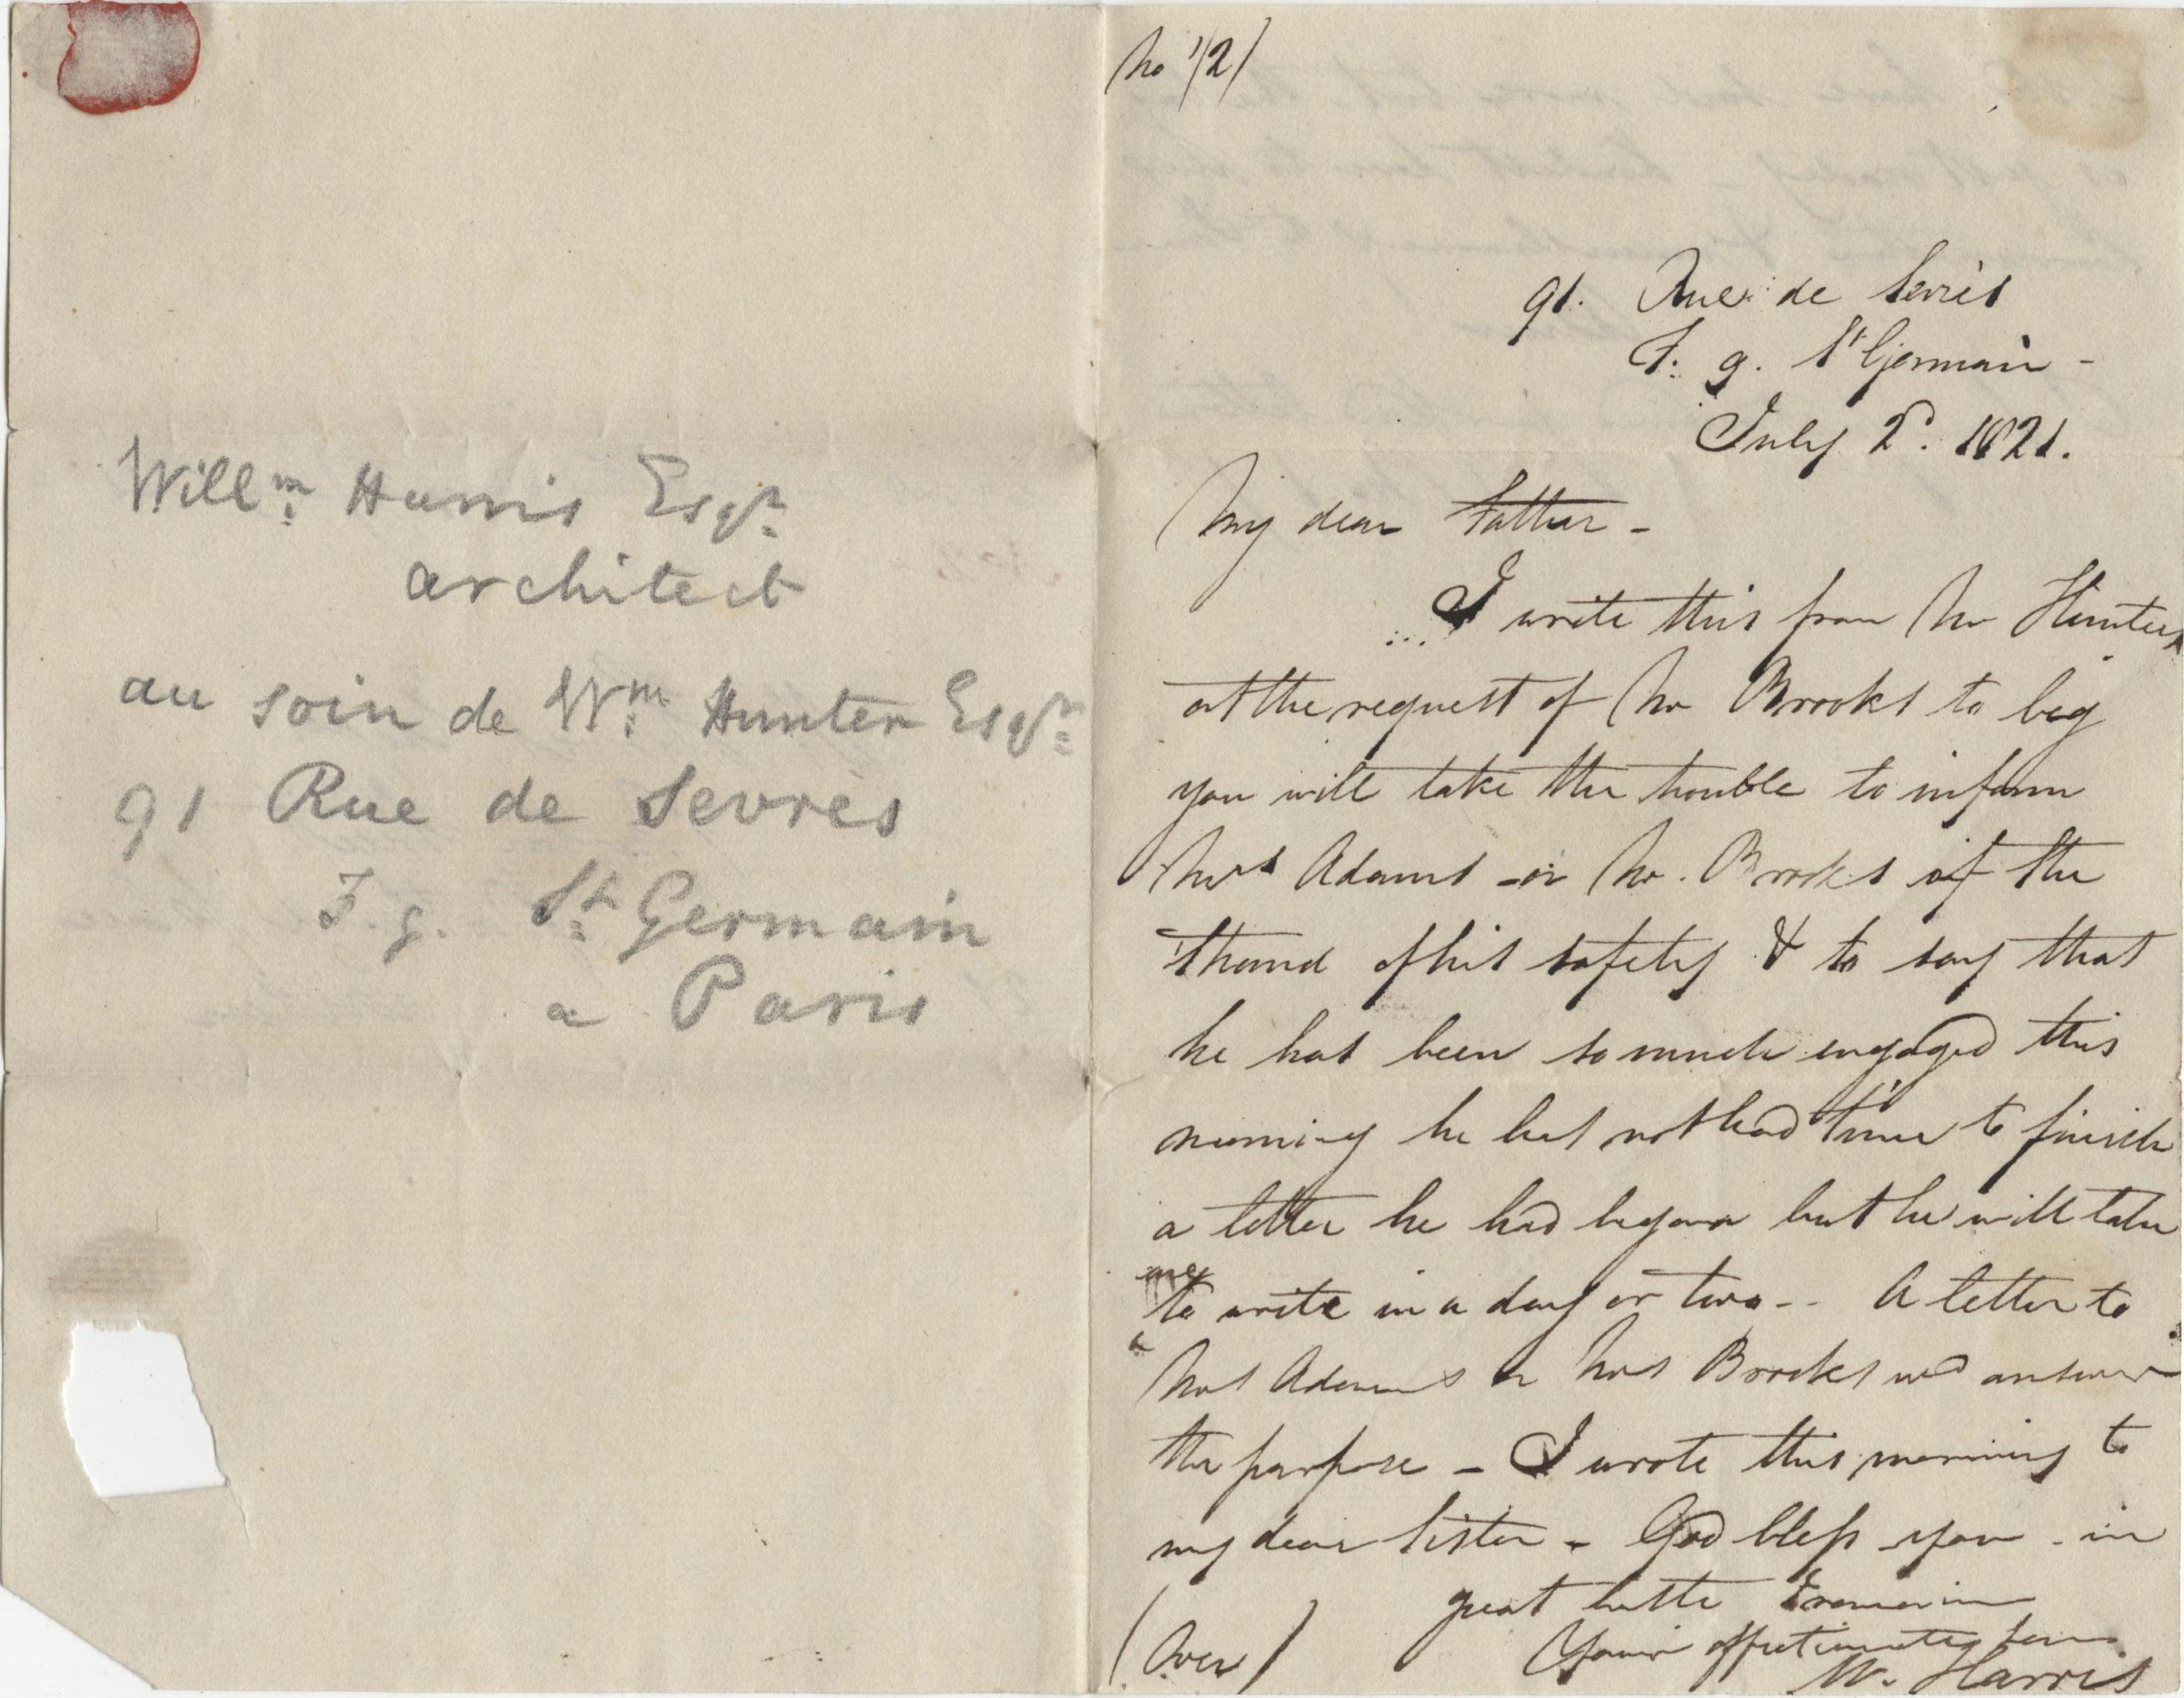 Willm Harris Esqr
architect
au soin de Wm Hunter Esqr
91 Rue de Sevrès
F. g. St Germain
a Paris
No 1/2/
91. Rue de Sevrès
F. g. St Germain -
July 2d. 1821.
My dear Father -
I write this from Mr Hunters
at the request of Mr Brooks to beg
you will take the trouble to inform
Mrs Adams - or Mr. Brooks of the
Strand of his safety & to say that
he has been so much engaged this
morning he has not had time to finish
a letter he had begun but he will take
to write in a day or two -- A letter to
Mrs Adams or Mrs Brooks wd answer
the purpose - I wrote this morning to
my dear Sister - God bless you - in
great haste I remain
Your affectionate son
W. Harris
(Over)